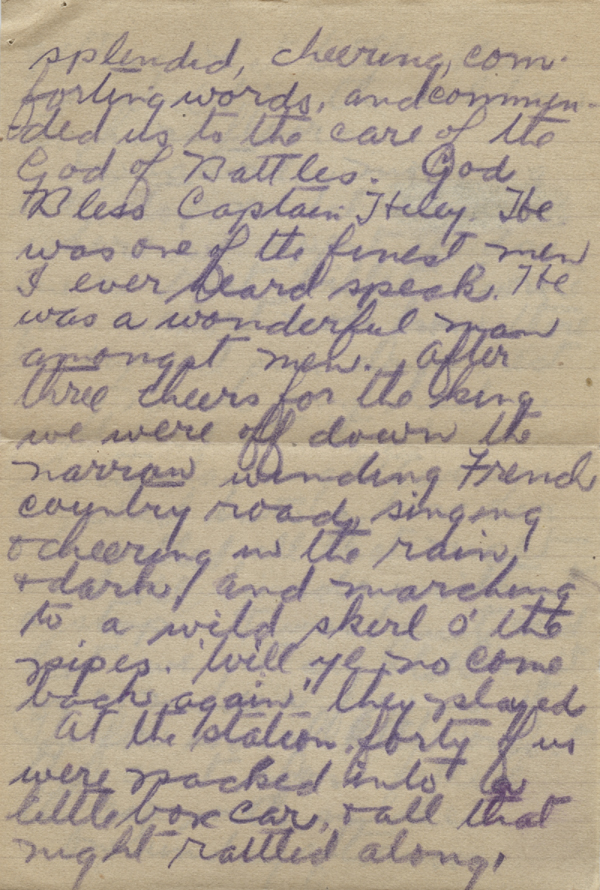 splendid, cheering, com-
forting words, and commen-
ded us to the care of the
God of Battles. God
Bless Captain He
was one of the finest men
I ever heard speak. He
was a wonderful man
amongst men. After
three cheers for the king
we were off down the
narrow winding French
country road, singing
& cheering in the rain,
& dark! and marching
to a wild skerl o' the
pipes. 'Will ye no come
back again' they played
At the station forty of us
were packed into a
little box car, & all that
night rattled along,